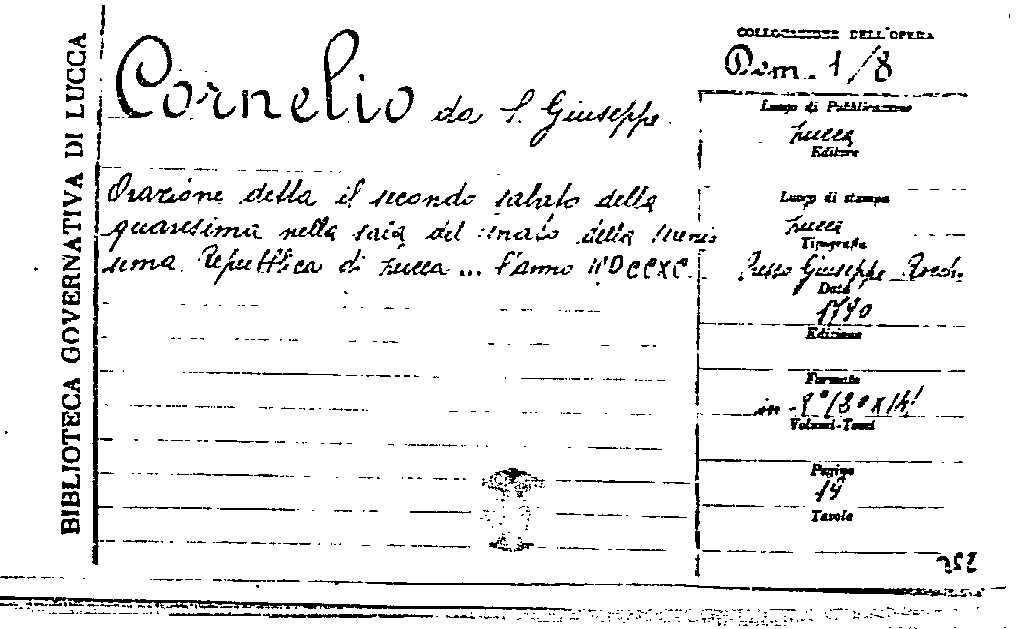 BIBLIOTECA GOVERNATIVA DI LUCCA
Cornelio da S. Giuseppe.
Orazione detta il secondo sabato della
quaresima nella sala del senato della sereniss
sima Repubblica di Lucca ... l'anno MDCCXC.
COLLOCAZIONE DELL'OPERA
Dom. 1/8
Luogo di Pubblicazione
Lucca
Editore
Luogo di stampa
Lucca
Tipografia
Presso Giuseppe Rocchi
Data
1790
Edizione
Formato
in-8°
Volumi-Tomi
Pagine
Tavole